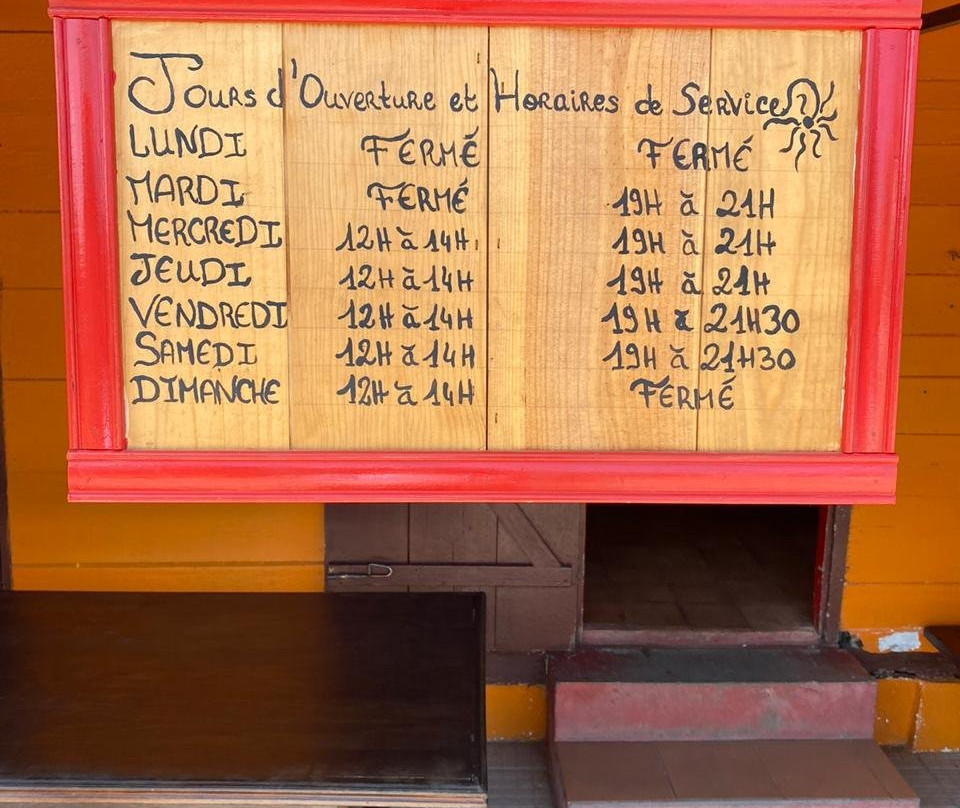 Jours d'Ouverture et Horaires de Service
LUNDI FERMÉ FERMÉ
MARDI FERMÉ 19H à 21H
MERCREDI 12H à 14H 19H à 21H
JEUDI 12H à 14H 19H à 21H
VENDREDI 12H à 14H 19H à 21H30
SAMEDI 12H à 14H 19H à 21H30
DIMANCHE 12H à 14H FERMÉ